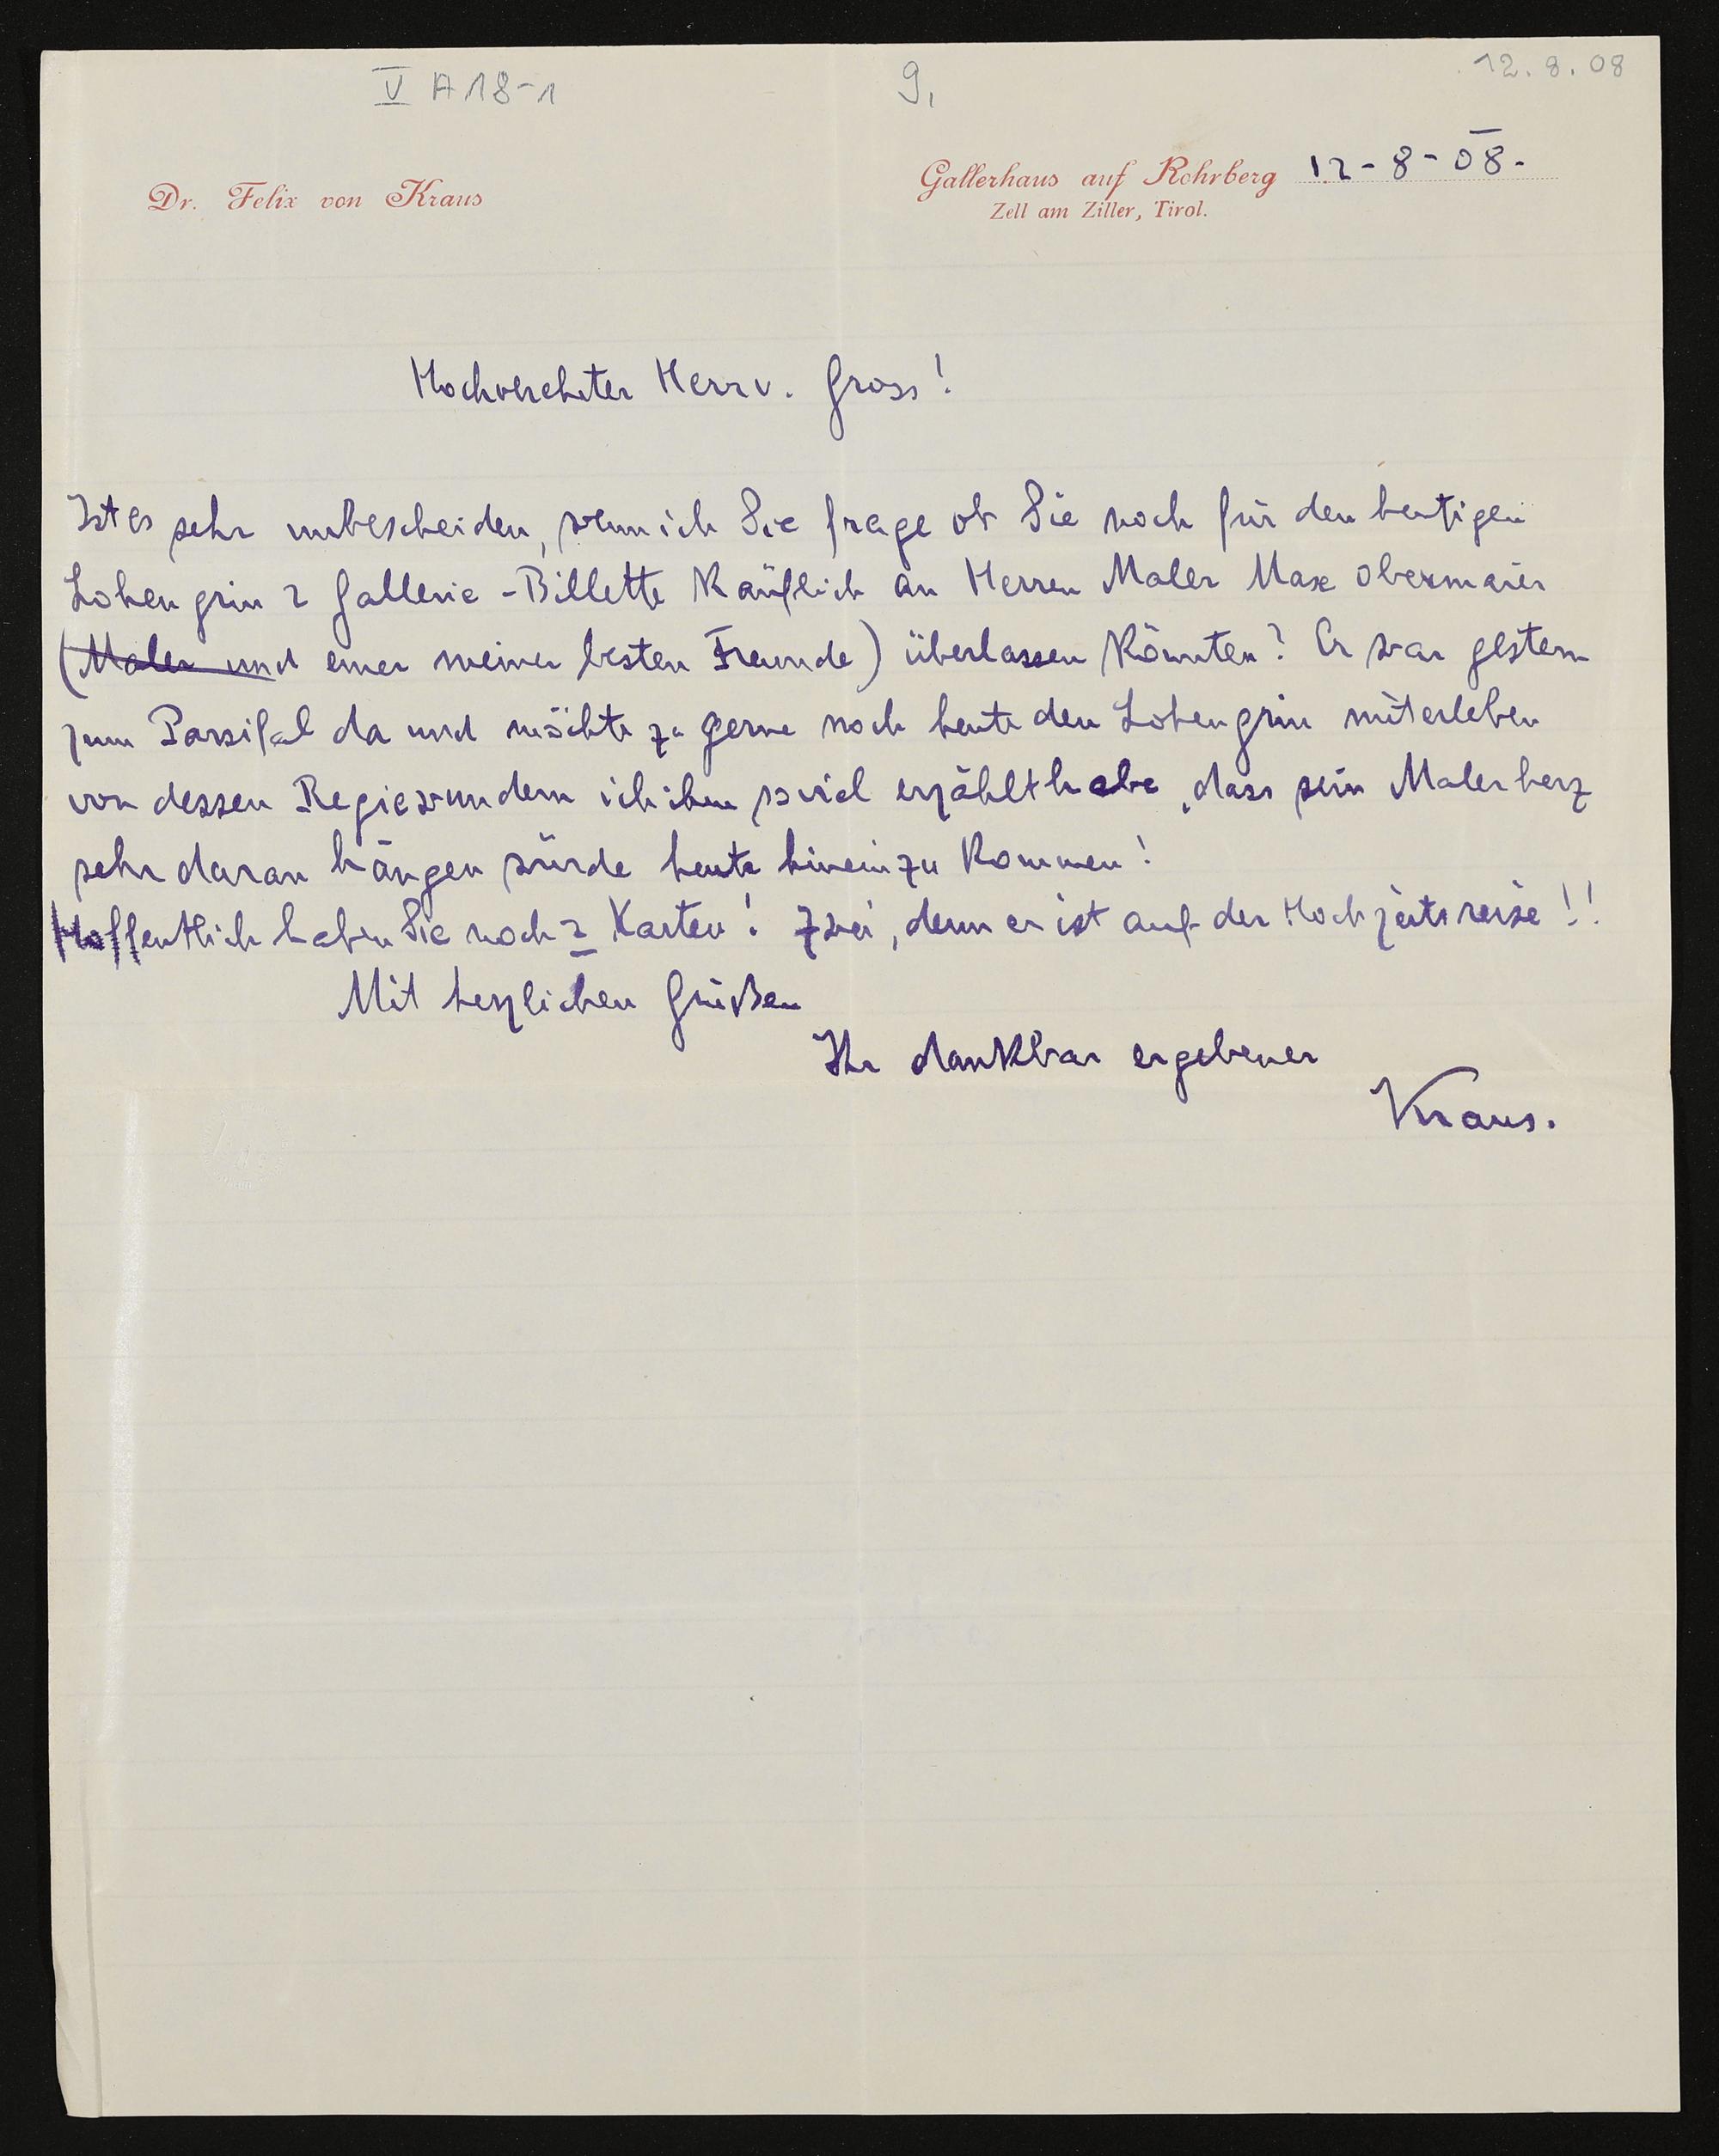 V A 18-1
9,
12.8.08
Dr. Felix von Kraus
Gallerhaus auf Rohrberg 12-8-08-
Zell am Ziller, Tirol.
Hochverehrter Herr v. Gross!
Ist es sehr unbescheiden, wenn ich Sie frage ob Sie noch für den heutigen
Lohengrin 2 Gallerie-Billette käuflich an Herren Maler Max Obermaier
(Maler und einer meiner besten Freunde) überlassen könnten? Er war gestern
zum Parsifal da und möchte zu gerne noch heute den Lohengrin miterleben
von dessen Regiewundern ich ihm soviel erzählt habe, dass sein Malerherz
sehr daran hängen würde heute hineinzukommen!
Hoffentlich haben Sie noch 2 Karten! Zwei, denn er ist auf der Hochzeitsreise!!
Mit herzlichen Grüßen
Ihr dankbar ergebener
Kraus.